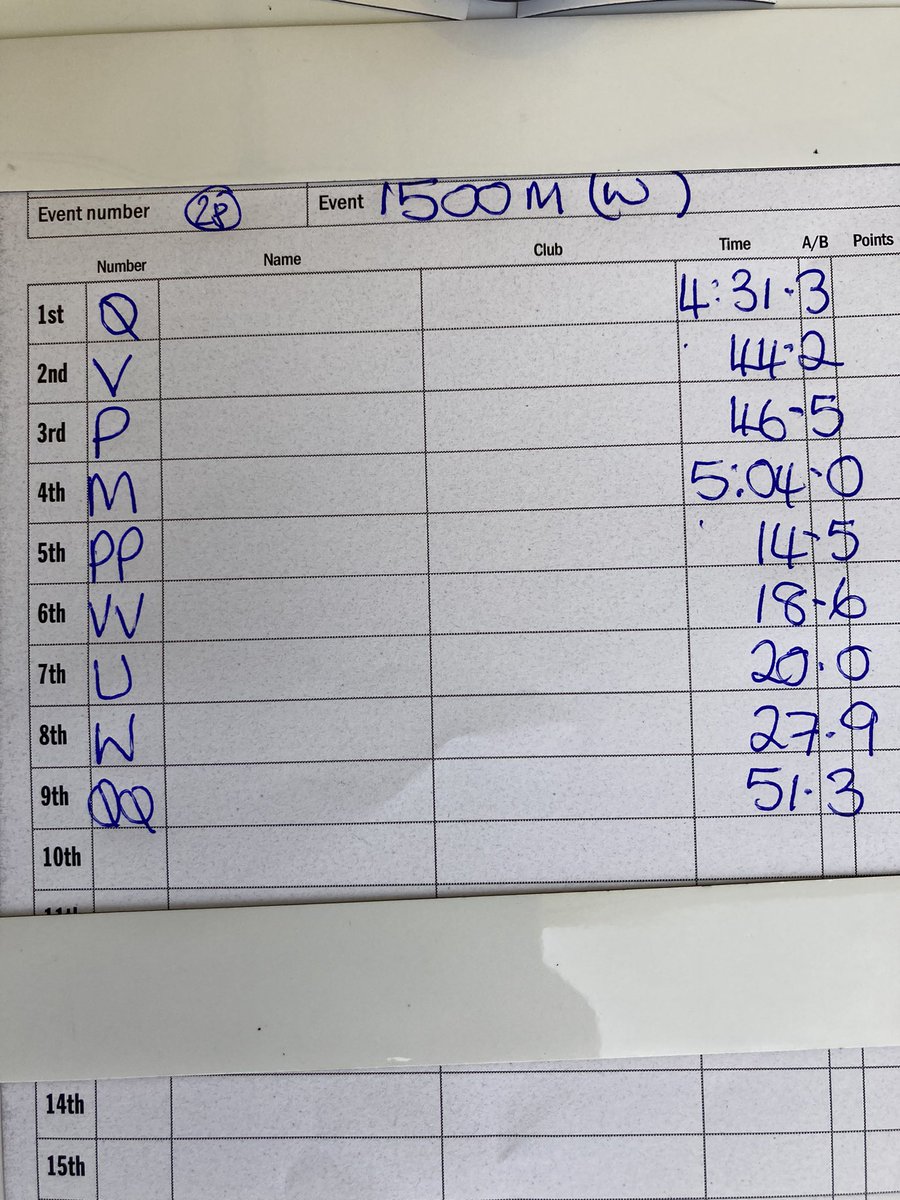 Event number 28 Event 1500M (W)
Number Name Club Time A/B Points
1st Q 4:31.3
2nd V 44.2
3rd P 46.5
4th M 5:04.0
5th PP 14.5
6th VV 18.6
7th U 20.0
8th W 27.9
9th QQ 51.3
10th
14th
15th